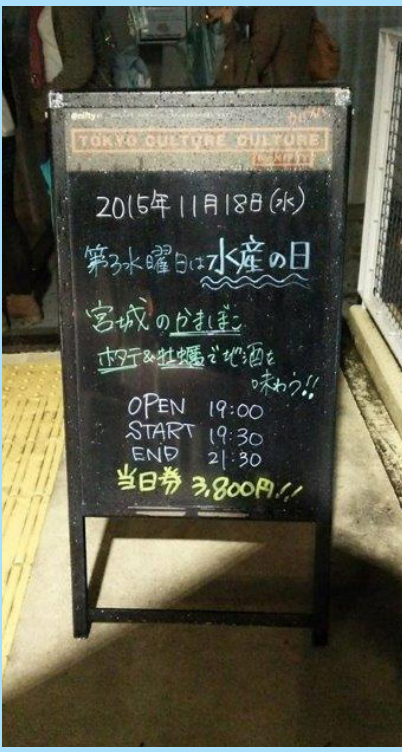 @nifty
TOKYO CULTURE CULTURE
2015年11月18日(水)
第3水曜日は水産の日
宮城のかまぼこ
ホタテ&牡蠣で地酒を
味わう!!
OPEN 19:00
START 19:30
END 21:30
当日券 3,800円!!